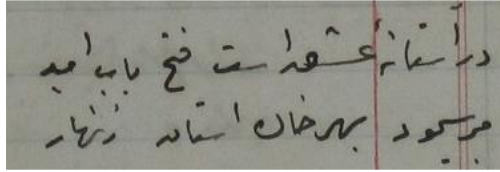 در آستانهٔ عشق است فتح باب امید
مبر سجود بهر خاک آستان زنهار